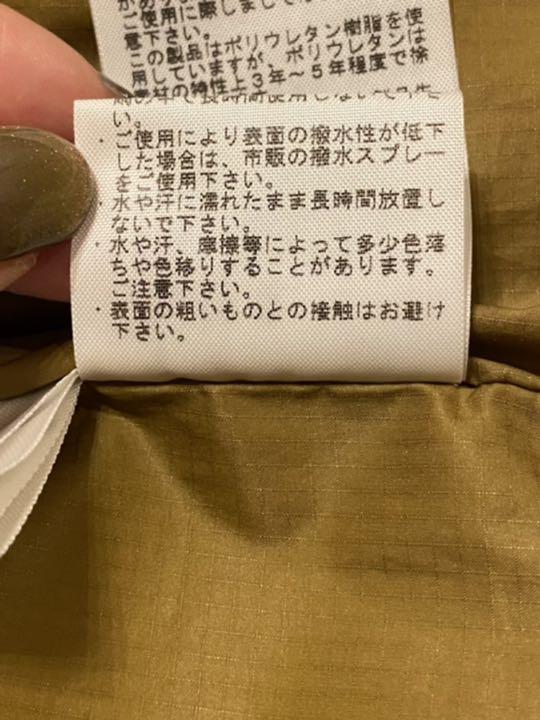 に際しまして
ご使用に
意下さい。
この製品はポリウレタン樹脂を使
用していますが、ポリウレタンは
素材の特性上3年～5年程度で徐
雨の中で長時間使用しないで下さ
い。
・ご使用により表面の撥水性が低下
した場合は、市販の撥水スプレー
をご使用下さい。
・水や汗に濡れたまま長時間放置し
ないで下さい。
・水や汗、摩擦等によって多少色落
ちや色移りすることがあります。
ご注意下さい。
・表面の粗いものとの接触はお避け
下さい。